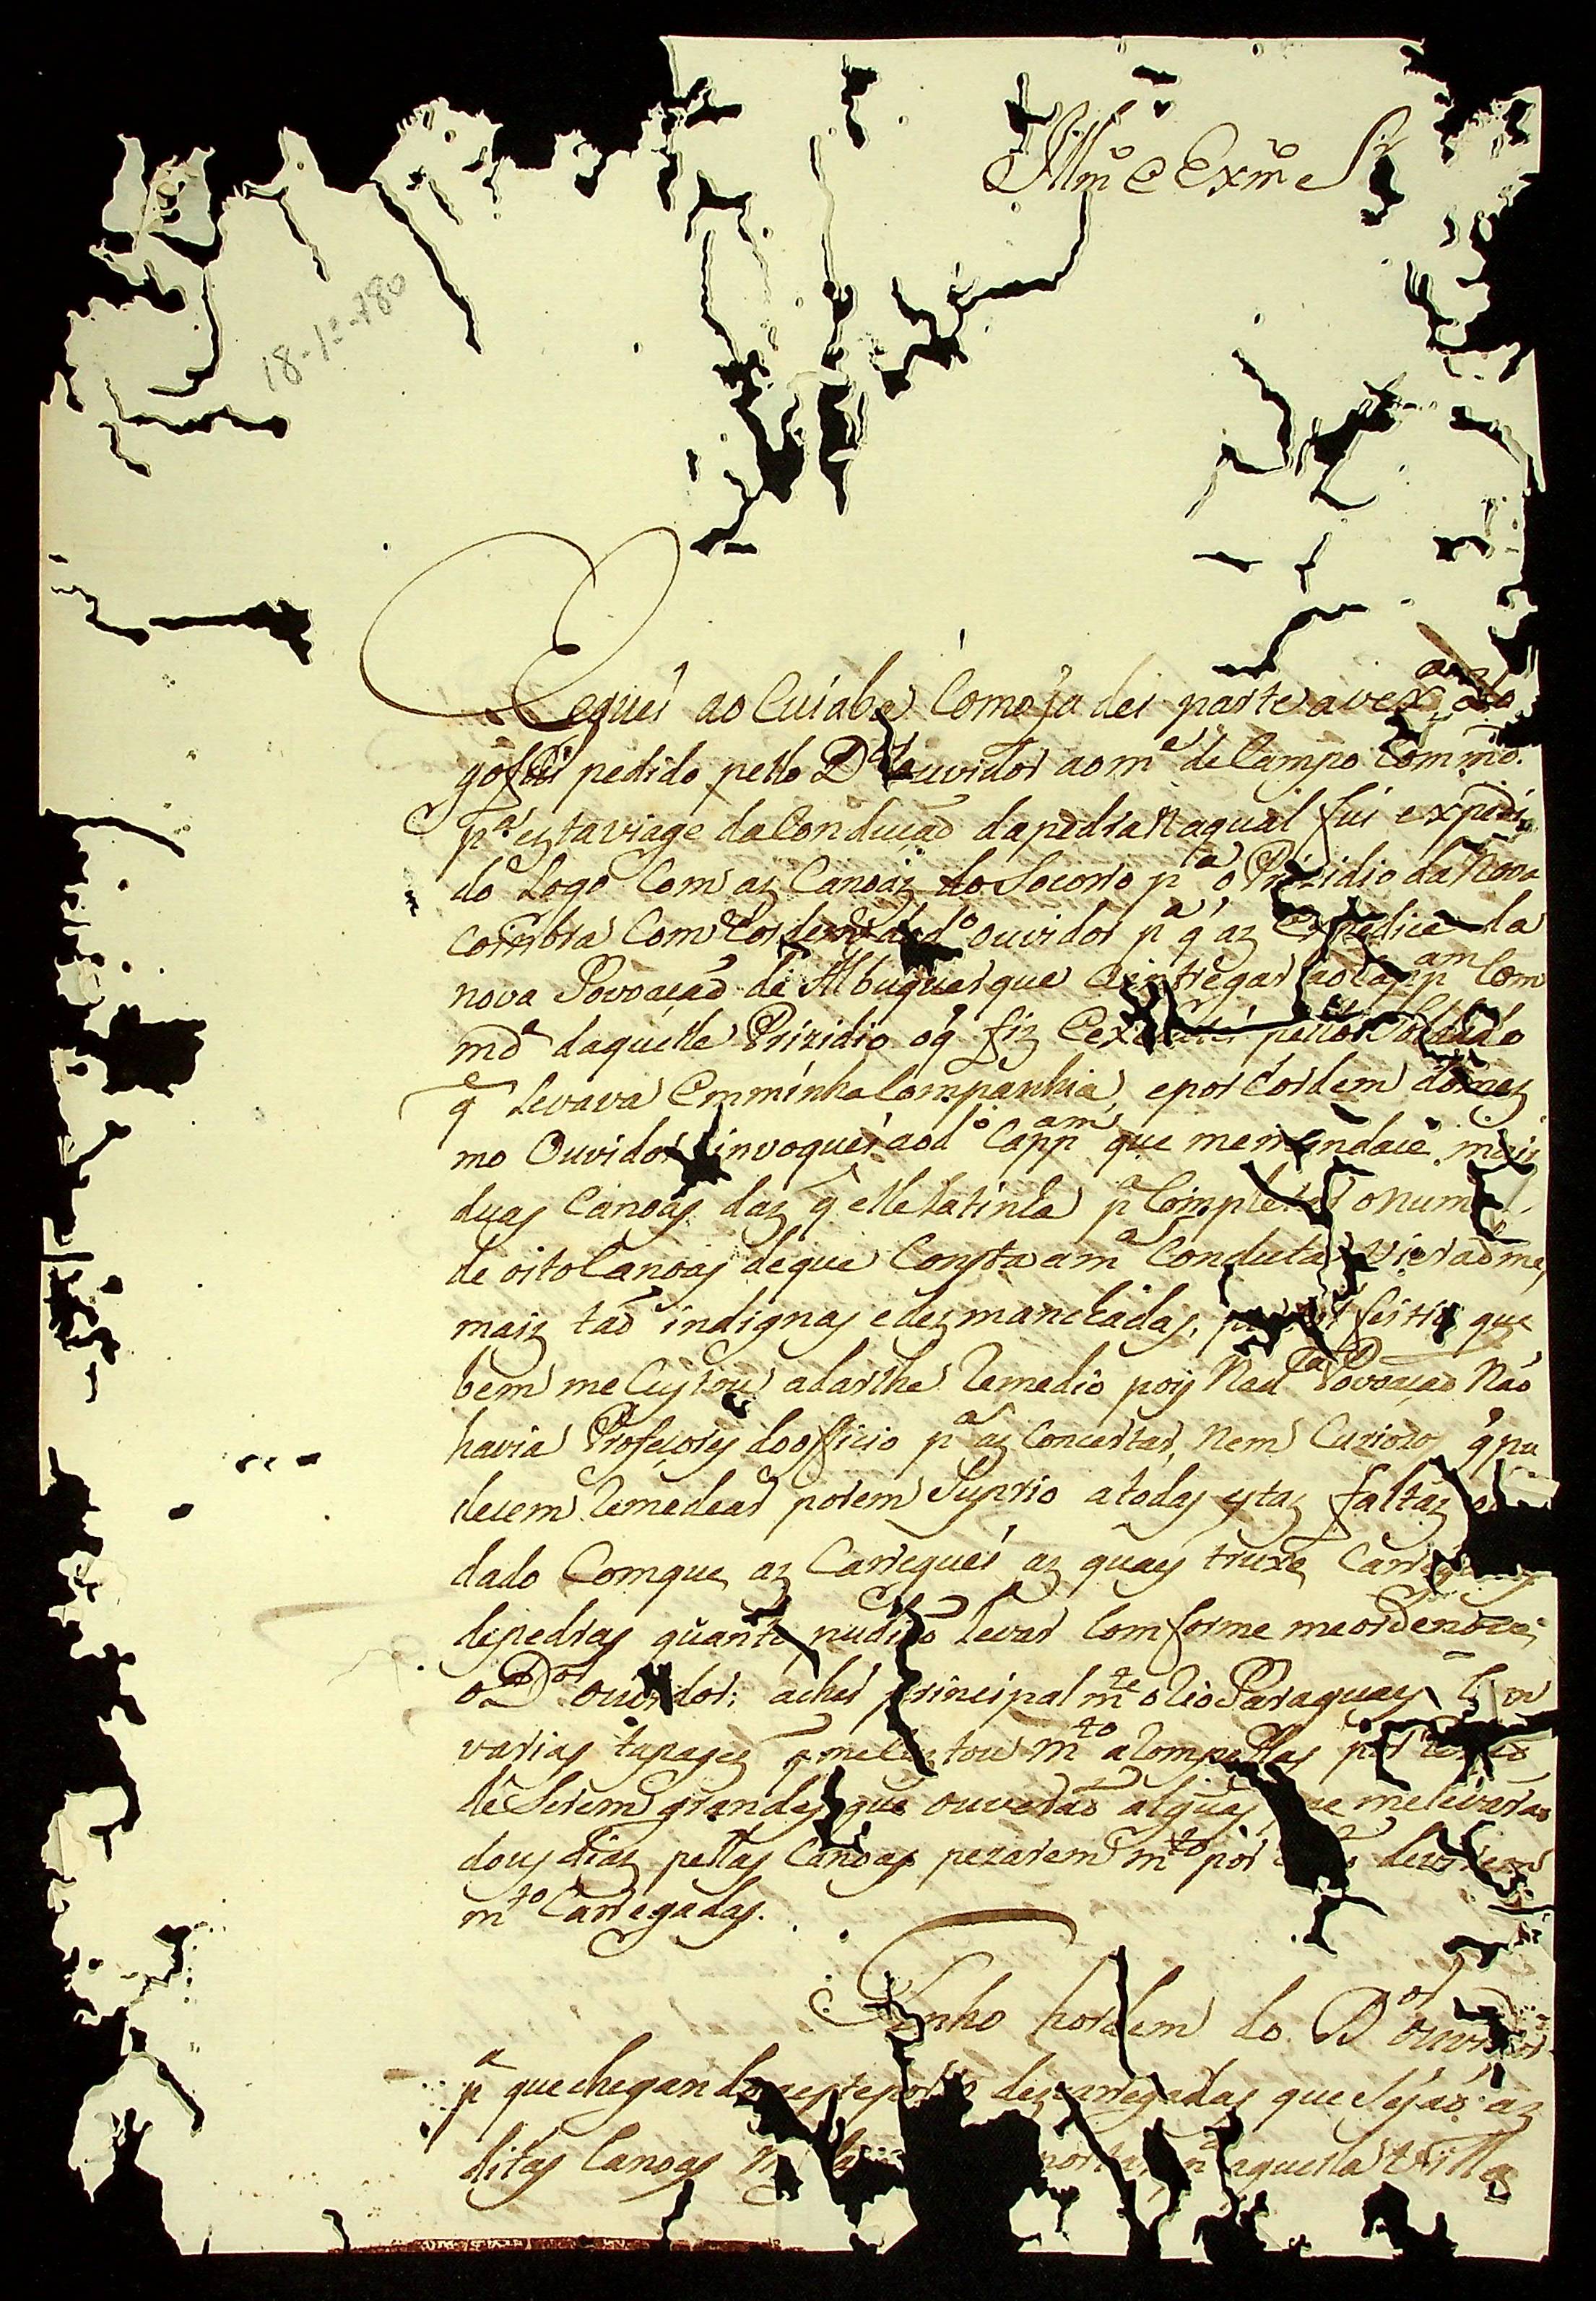 Illmo e Exmo Sr
18-1º-780
Ceguei ao Cuiaba Como ja dei parte avexa
go fui pedido pello Dor ouvidor ao me de Campo Commdo.
pa esta viage da Conducaõ da pedra Na qual fui expedi
do Logo Com az Canoaz do Socorro pa o Prizidio da Nova
coimbra Com hordem do do ouvidor pa q az Expedice da
nova Povoacaõ de Albuquerque e intregar ao Cappam Com
mde daquelle Prizidio oq fiz
q Levava Em minha Companhia, e por hordem do mez
mo Ouvidor invoquei ao do Cappam que me mandace mais
duas Canoas daz q elle la tinha pa Completar o num
de oito Canoas de que Consta a ma Conducta Vieraõ me,
maiz taõ indignas e dezmanchadas, feitio que
bem me Custou a dar lhe Remedio pois Na da Povoacaõ Naõ
havia Profecores do officio pa az Concertar, Nem Curiozos q pu
decem Remedear porem Suprio a todas estaz faltaz
dado Com que az Carreguei az quais truxe
de pedras quanto pudero Levar Comforme me ordenou
o Dor ouvidor: achei principal mte o Rio Paraguay Com
varias tapages q me Custou mto a Rompellas por
de Serem grandes que ouveraõ alguas que me levaraõ
dous diaz pellas Canoas pezarem mto por
mto Carregadas.
Tenho hordem do Dor ouvidor
pa que chegando a este porto dezcarregadas que Sejaõ az
ditas Canoas aquella Villa